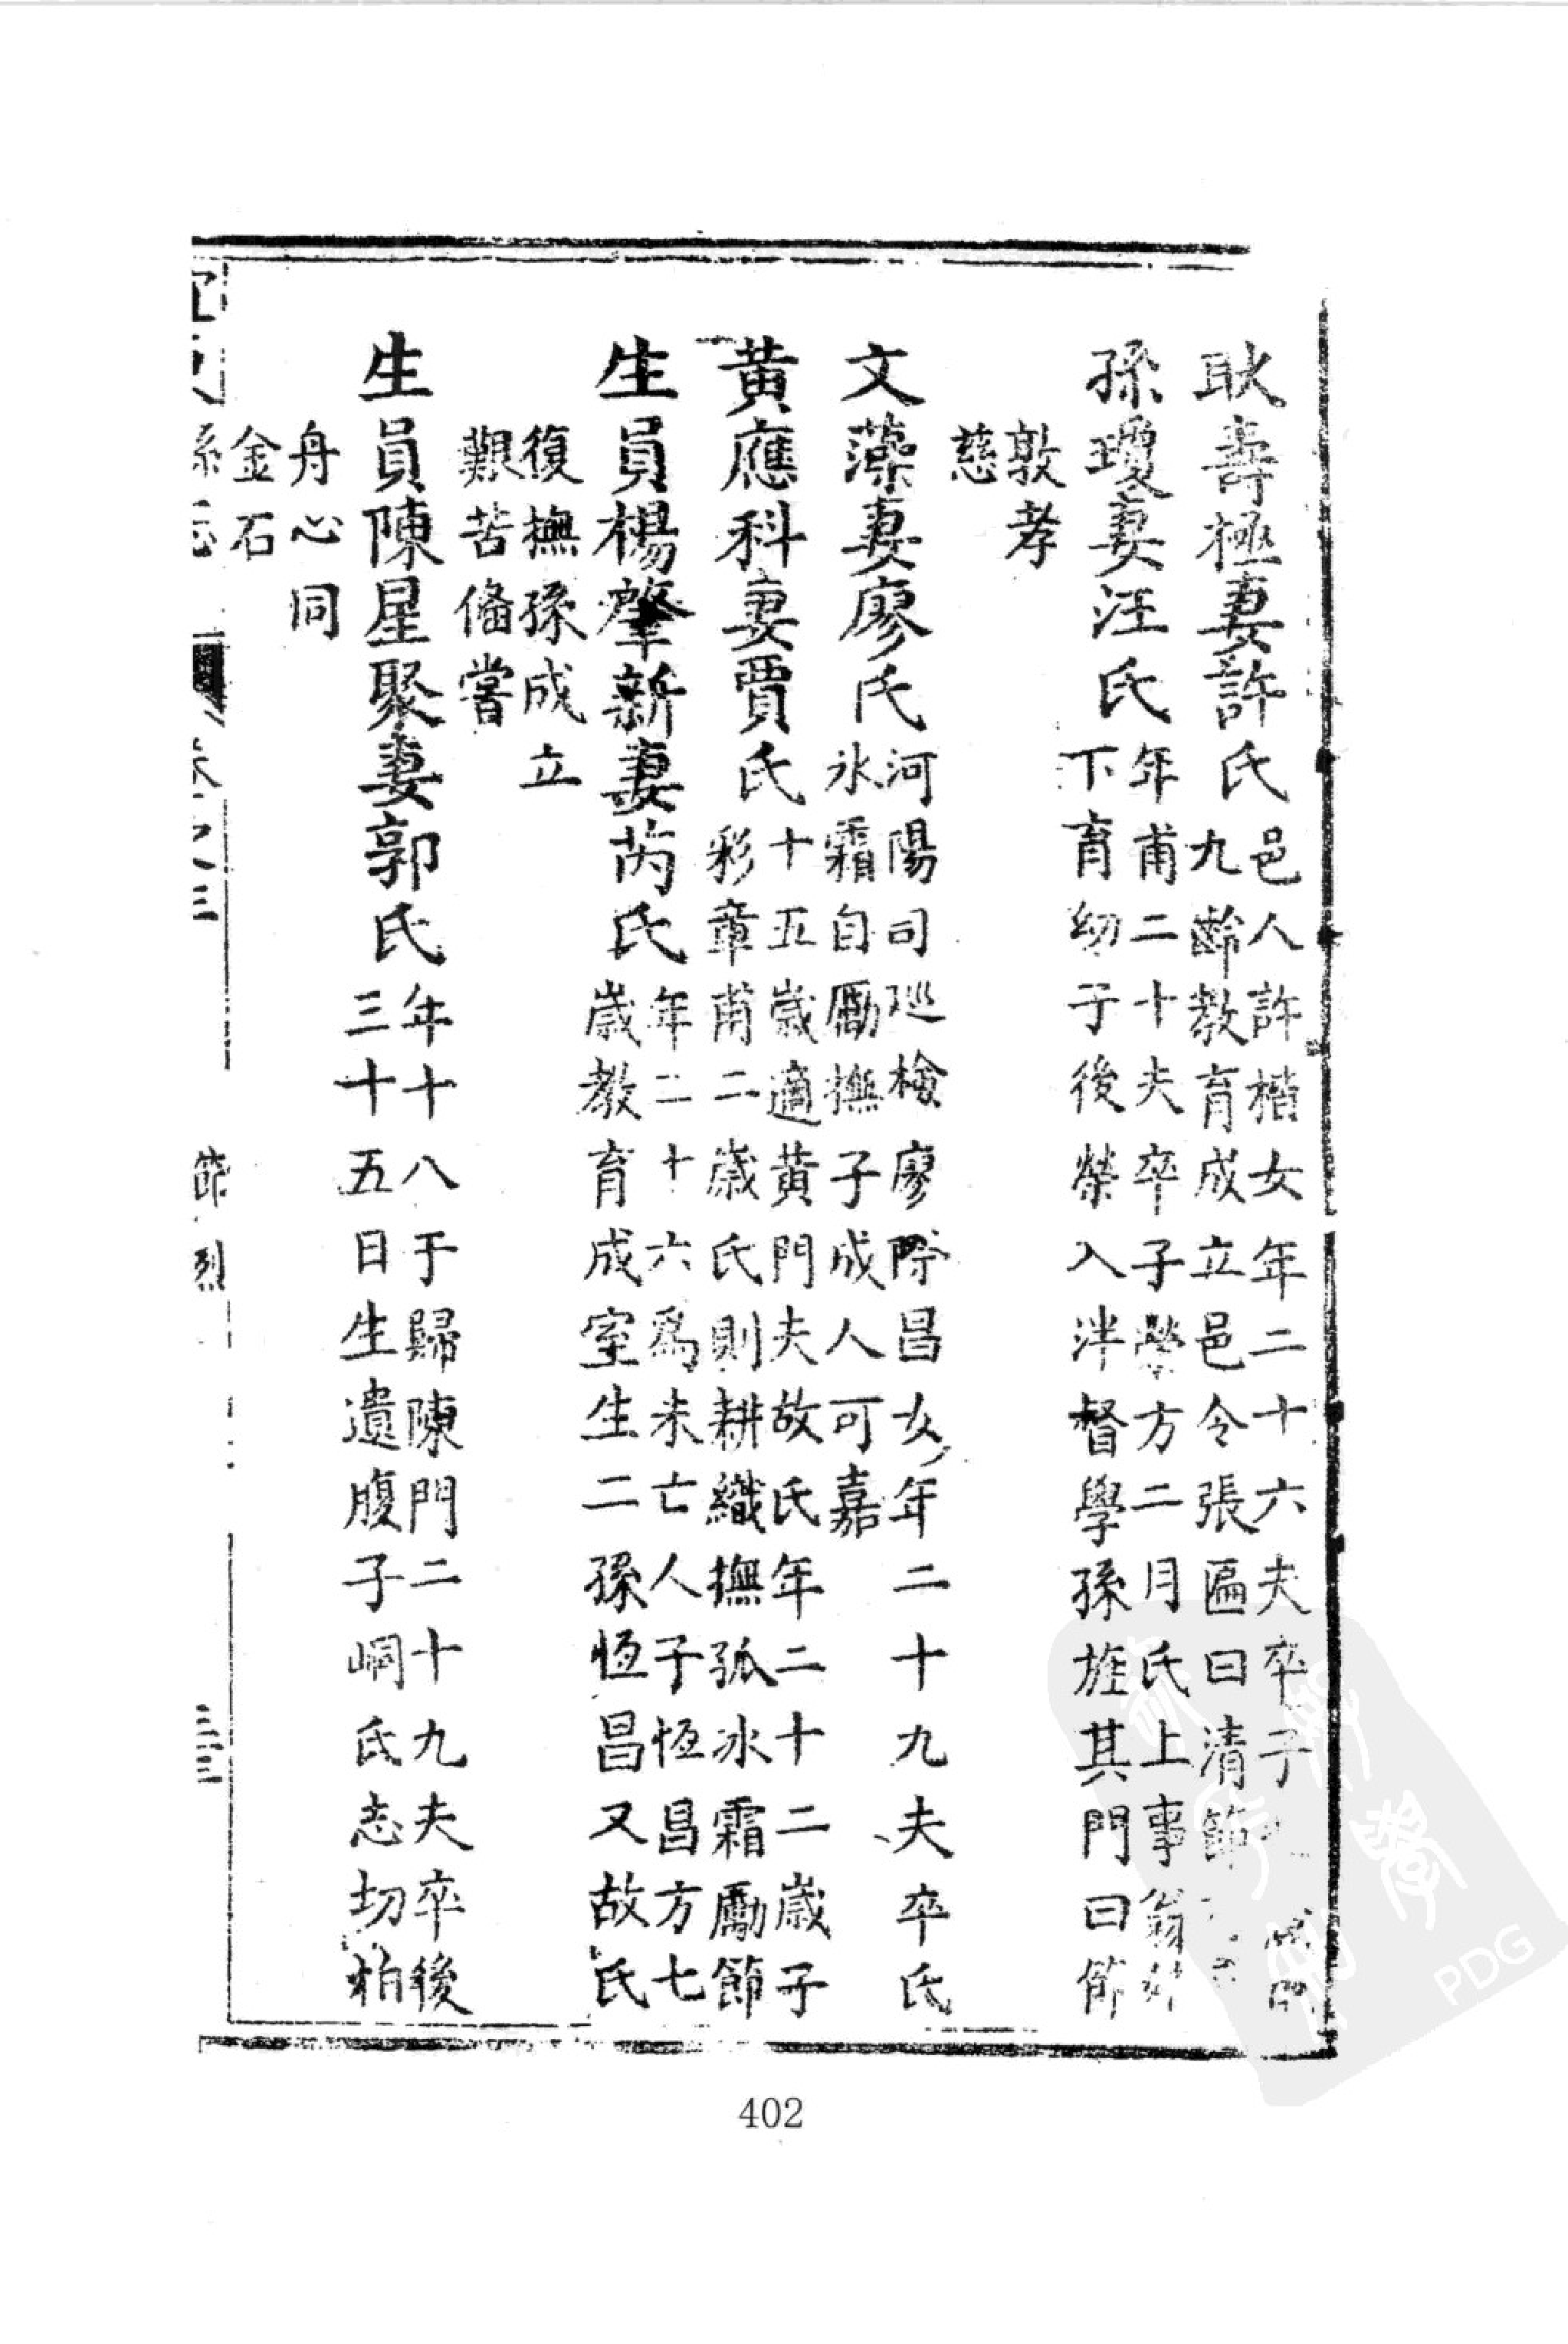 耿壽極妻許氏
邑人許楷女年二十六夫卒子
九齡教育成立邑令張匾曰清節
孫瓊妻汪氏
年甫二十夫卒子榮方二月氏上事翁
下育幼子後榮入泮督學孫旌其門曰節
敦孝
慈
文藻妻廖氏
河陽司巡檢廖際昌女年二十九夫卒氏
氷霜自勵撫子成人可嘉
黃應科妻賈氏
十五歲適黃門夫故氏年二十二歲子
彩章甫二歲氏則耕織撫孤冰霜勵節
生員楊肇新妻芮氏
年二十六爲未亡人子恆昌方七
歲教育成室生二孫恆昌又故氏
復撫孫成立
艱苦俻嘗
生員陳星聚妻郭氏
年十八于歸陳門二十九夫卒後
三十五日生遺腹子峒氏志切柏
舟心同
金石
節烈
三三
402
PDG